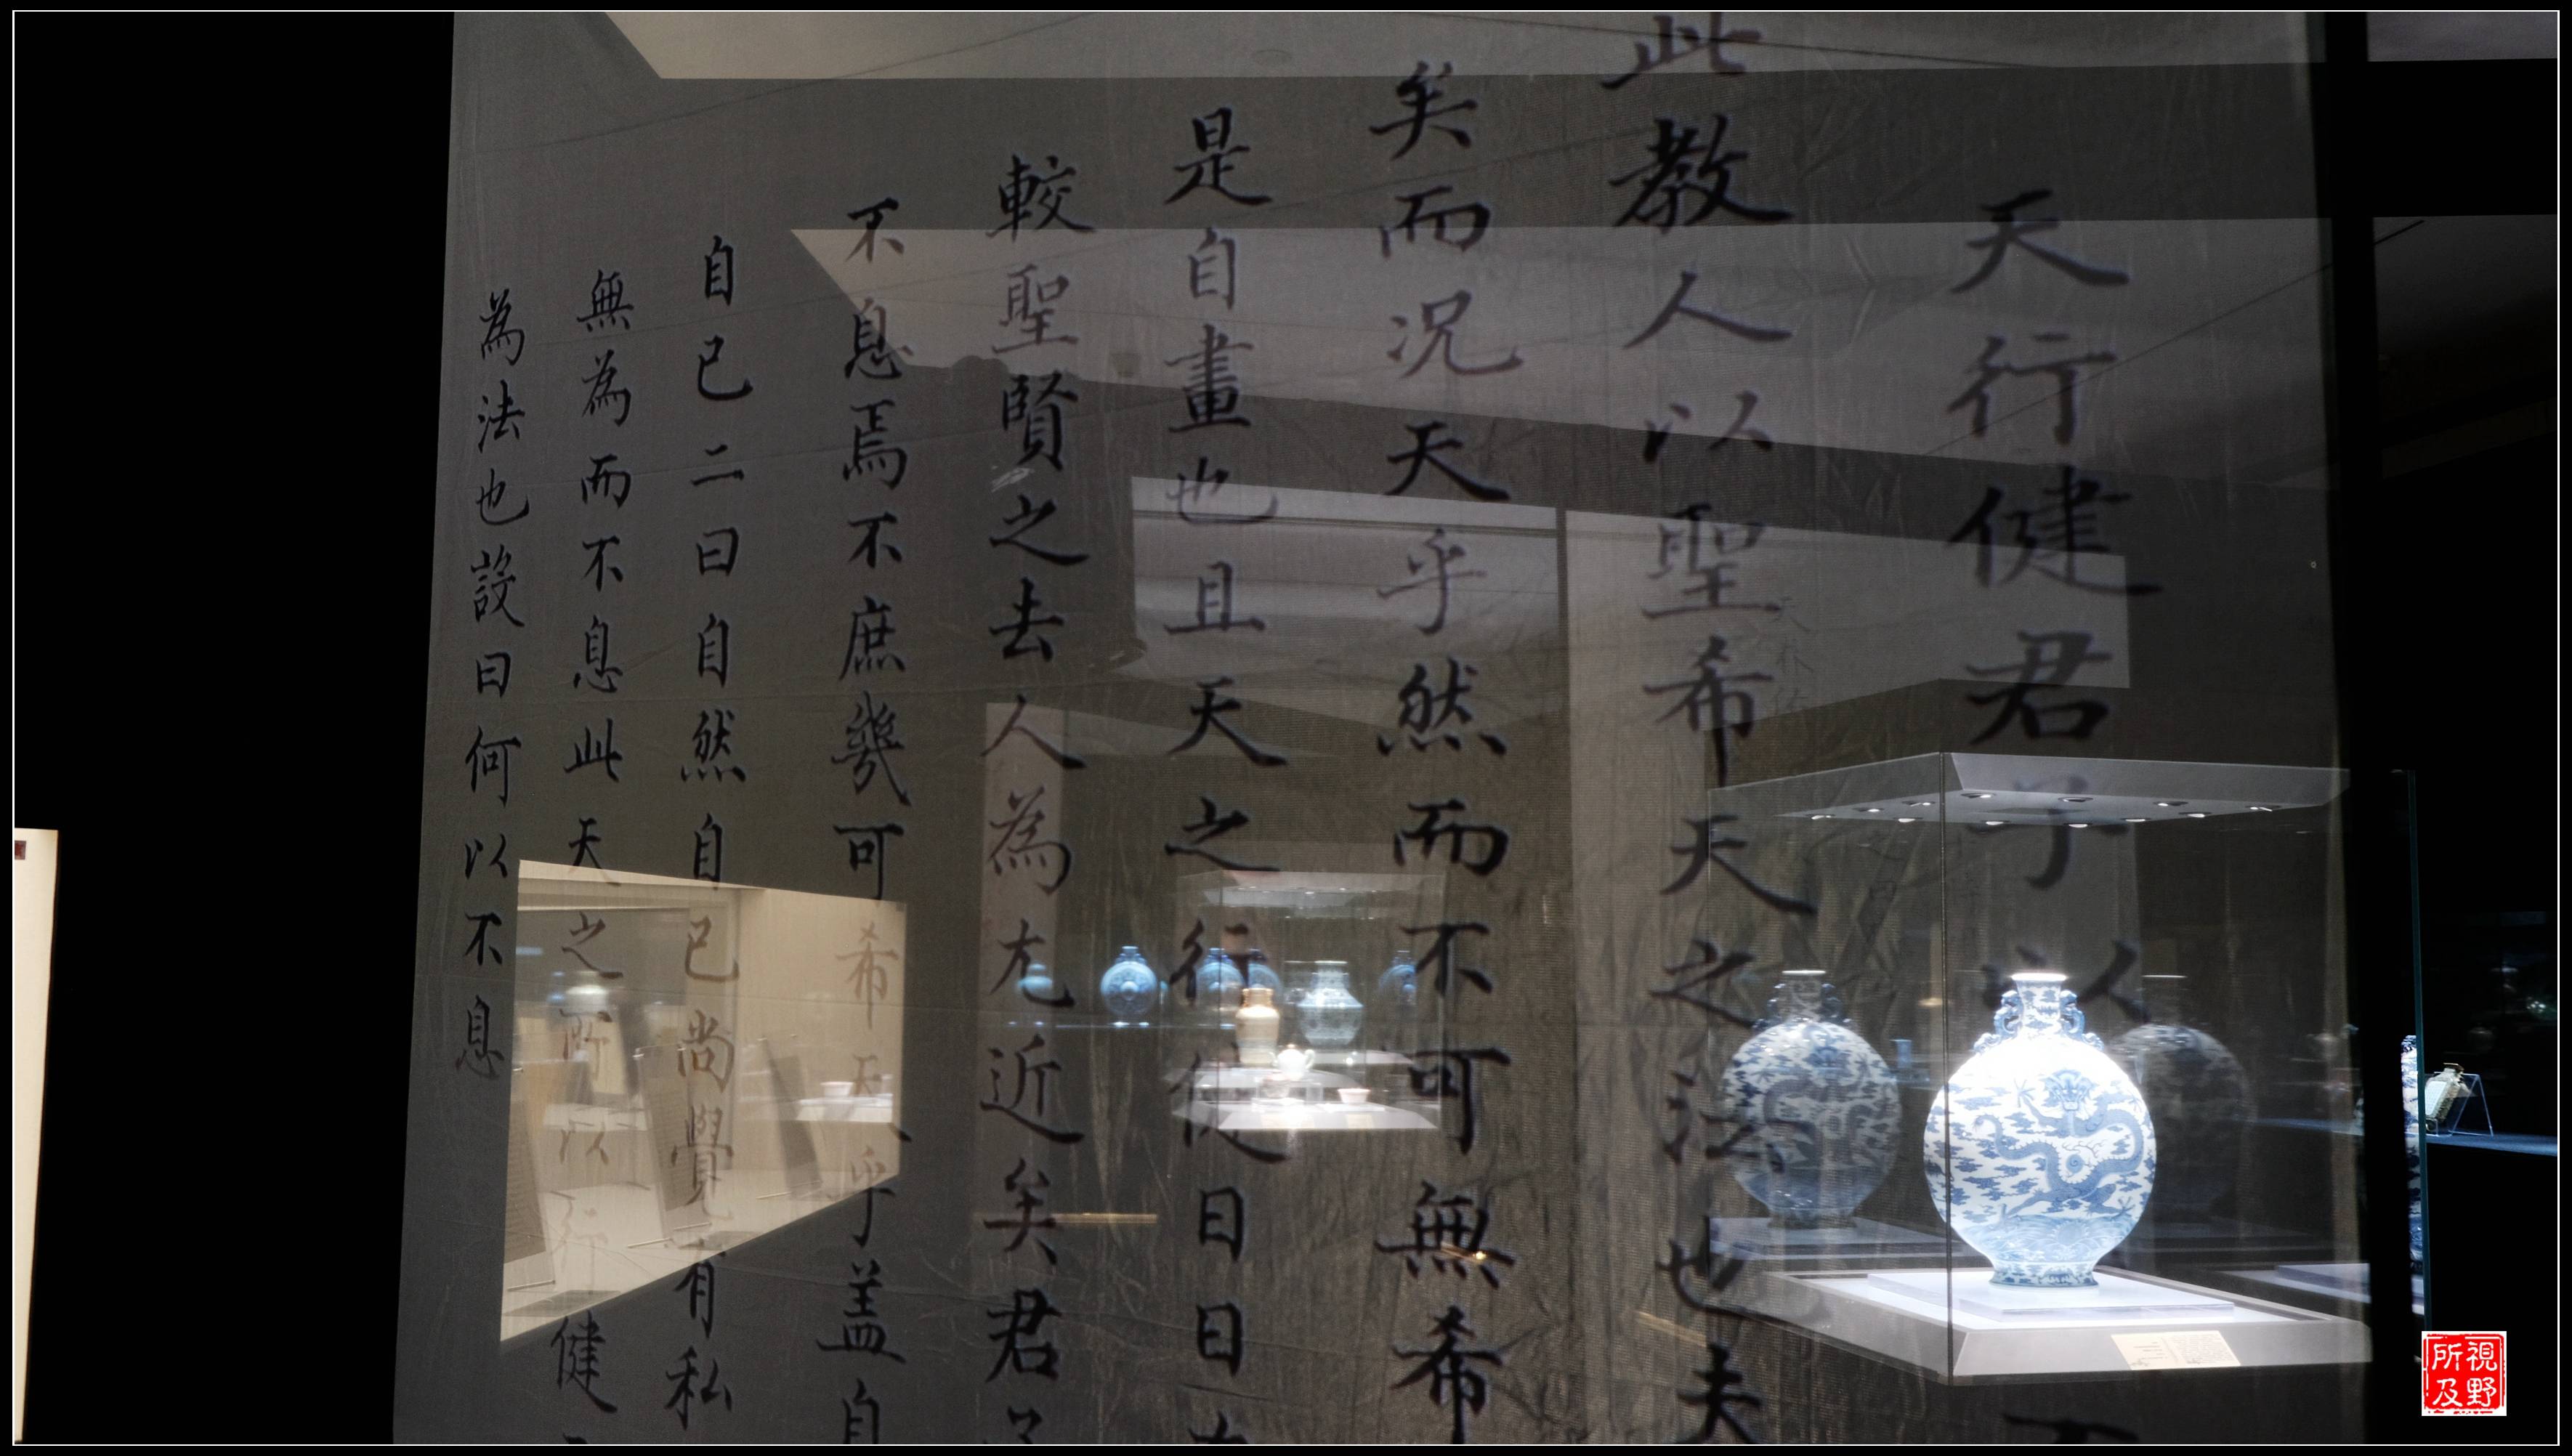 天行健君子以
此教人以聖希天之法也夫
矣而况天乎然而不可無希
是自畫也且天之行健日日
較聖賢之去人為尢近矣君
不息焉不庶幾可希天乎盖自
自已二曰自然自已尚覺有私
無為而不息此天之所以行健
為法也設曰何以不息
視野所及